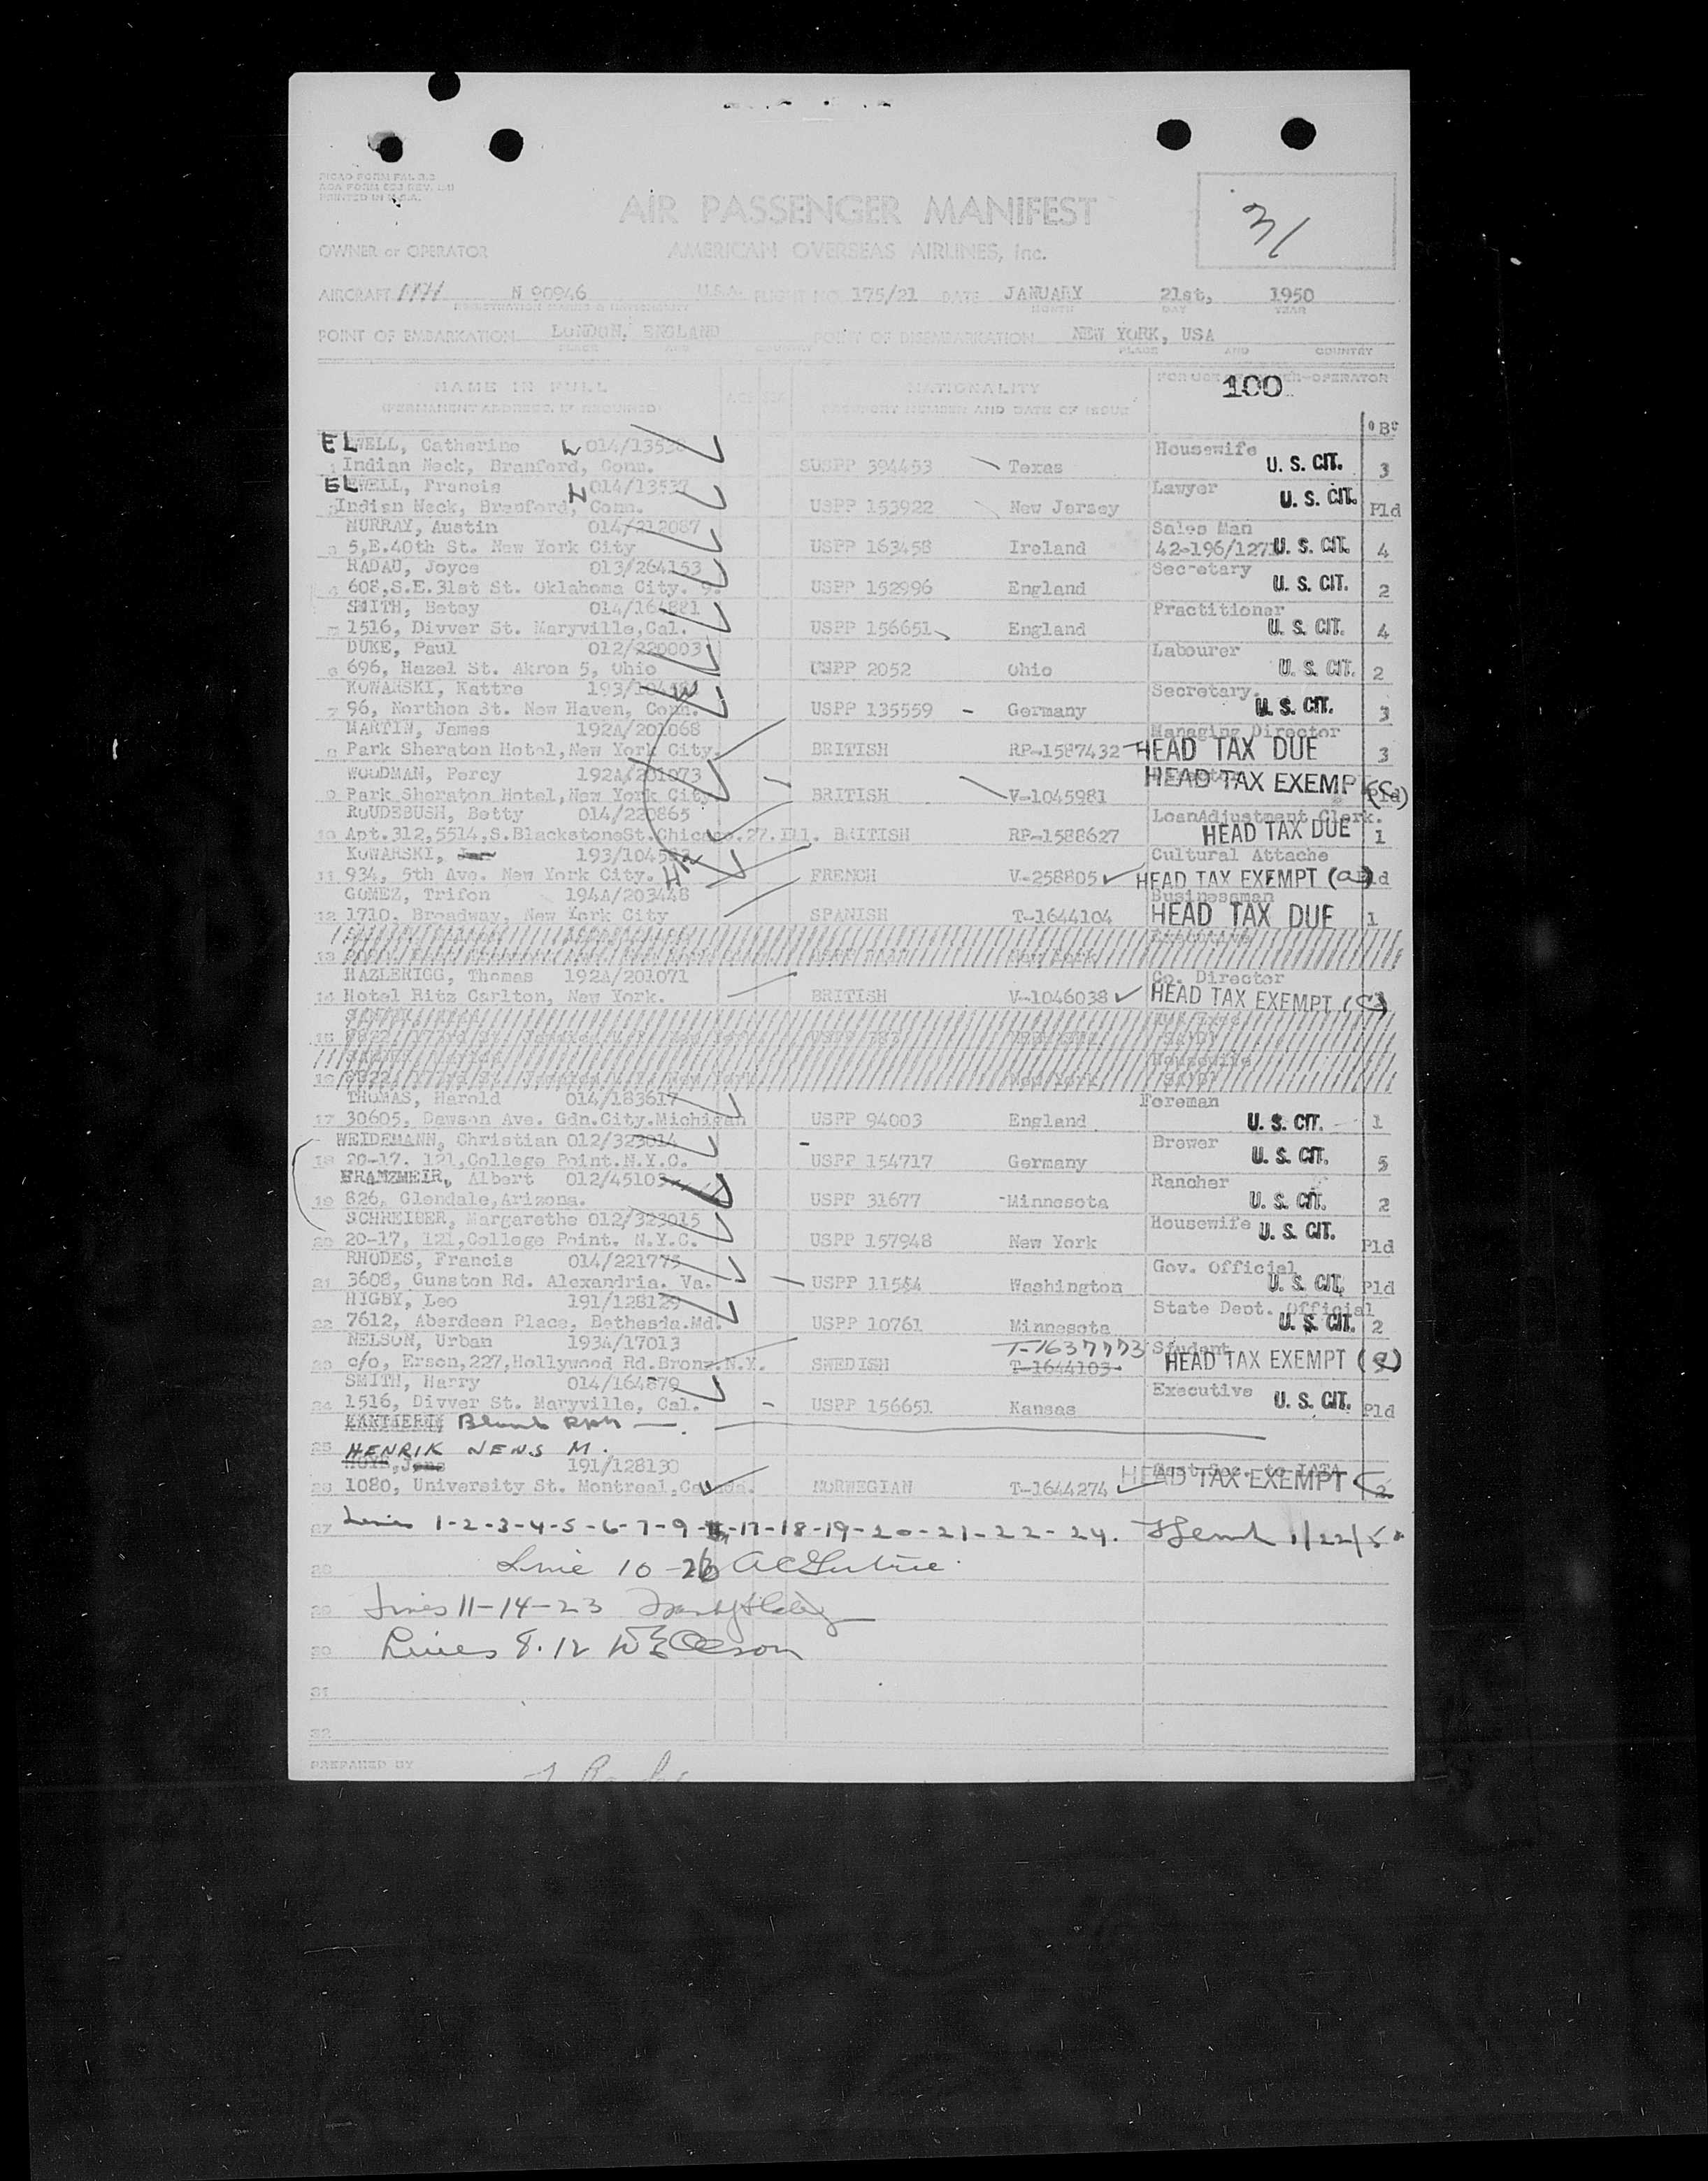 PICAO FORM FAL 3.2
PRINTED IN U.S.A.
31
AIR PASSENGER MANIFEST
OWNER or OPERATOR AMERICAN OVERSEAS AIRLINES, Inc.
AIRCRAFT N 90946 U.S.A. FLIGHT NO. 175/21 DATE JANUARY 21st, 1950
REGISTRATION MARKS & NATIONALITY MONTH DAY YEAR
POINT OF EMBARKATION LONDON, ENGLAND POINT OF DISEMBARKATION NEW YORK, USA
PLACE COUNTRY PLACE AND COUNTRY
NAME IN FULL AGE SEX NATIONALITY FOR USE OWNER-OPERATOR
(PERMANENT ADDRESS, IF REQUIRED) PASSPORT NUMBER AND DATE OF ISSUE 100
ELWELL, Catherine W 014/13538 Housewife
1 Indian Neck, Branford, Conn. SUSPP 394453 Texas U. S. CIT. 3
ELWELL, Francis H 014/13537 Lawyer
Indian Neck, Branford, Conn. USPP 153922 New Jersey U. S. CIT. Pld
MURRAY, Austin 014/212087 Sales Man
3 5,E.40th St. New York City USPP 163458 Ireland 42-196/127 U. S. CIT. 4
RADAU, Joyce 013/264153 Secretary
4 608,S.E.31st St. Oklahoma City. 9. USPP 152996 England U. S. CIT. 2
SMITH, Betsy 014/164881 Practitioner
5 1516, Divver St. Maryville,Cal. USPP 156651 England U. S. CIT. 4
DUKE, Paul 012/220003 Labourer
6 696, Hazel St. Akron 5, Ohio USPP 2052 Ohio U. S. CIT. 2
KOWARSKI, Kattre W Secretary.
7 96, Northon St. New Haven, Conn. USPP 135559 - Germany U. S. CIT. 3
MARTIN, James 192A/201068 Managing Director
8 Park Sheraton Hotel,New York City. BRITISH RP-1587432 HEAD TAX DUE 3
WOODMAN, Percy 192A/201073
9 Park Sheraton Hotel,New York City BRITISH V-1045981 HEAD TAX EXEMPT (C) Pld
ROUDEBUSH, Betty 014/220865 LoanAdjustment Clerk.
10 Apt.312,5514,S.BlackstoneSt.Chicago.27.Ill. BRITISH RP-1588627 HEAD TAX DUE 1
KOWARSKI, Cultural Attache
11 934, 5th Ave. New York City. H FRENCH V-258805 HEAD TAX EXEMPT (a) Pld
GOMEZ, Trifon 194A/203448 Businessman
12 1710, Broadway, New York City SPANISH T-1644104 HEAD TAX DUE 1
Executive
13 New York
HAZLERIGG, Thomas 192A/201071 Co. Director
14 Hotel Ritz Carlton, New York. BRITISH V-1046038 HEAD TAX EXEMPT (C)
15
Housewife
16 New York
THOMAS, Harold 014/183617 Foreman
17 30605, Dawson Ave. Gdn.City.Michigan USPP 94003 England U. S. CIT. 1
WEIDEMANN, Christian 012/323014 Brewer
18 20-17. 121,College Point.N.Y.C. USPP 154717 Germany U. S. CIT. 5
FRANZMEIR, Albert 012/45103 Rancher
19 826, Glendale,Arizona. USPP 31677 Minnesota U. S. CIT. 2
SCHREIBER, Margarethe 012/323015 Housewife
20 20-17, 121,College Point. N.Y.C. USPP 157948 New York U. S. CIT. Pld
RHODES, Francis 014/221775 Gov. Official
21 3608, Gunston Rd. Alexandria. Va. USPP 11544 Washington U. S. CIT. Pld
HIGBY, Leo 191/128129 State Dept. Official
22 7612, Aberdeen Place, Bethesda.Md. USPP 10761 Minnesota U. S. CIT. 2
NELSON, Urban 193A/17013 T-1637773 Student
23 c/o, Erson,227,Hollywood Rd.Bronx.N.Y. SWEDISH T-1644103 HEAD TAX EXEMPT (e)
SMITH, Harry 014/164879 Executive
24 1516, Divver St. Maryville, Cal. USPP 156651 Kansas U. S. CIT. Pld
25 HENRIK JENS M.
191/128130
26 1080, University St. Montreal,Canada. NORWEGIAN T-1644274 HEAD TAX EXEMPT 2
27 Lines 1-2-3-4-5-6-7-9-17-18-19-20-21-22-24. 1/22/50
28 Line 10-26
29 Lines 11-14-23
30 Lines 8.12
31
32
PREPARED BY